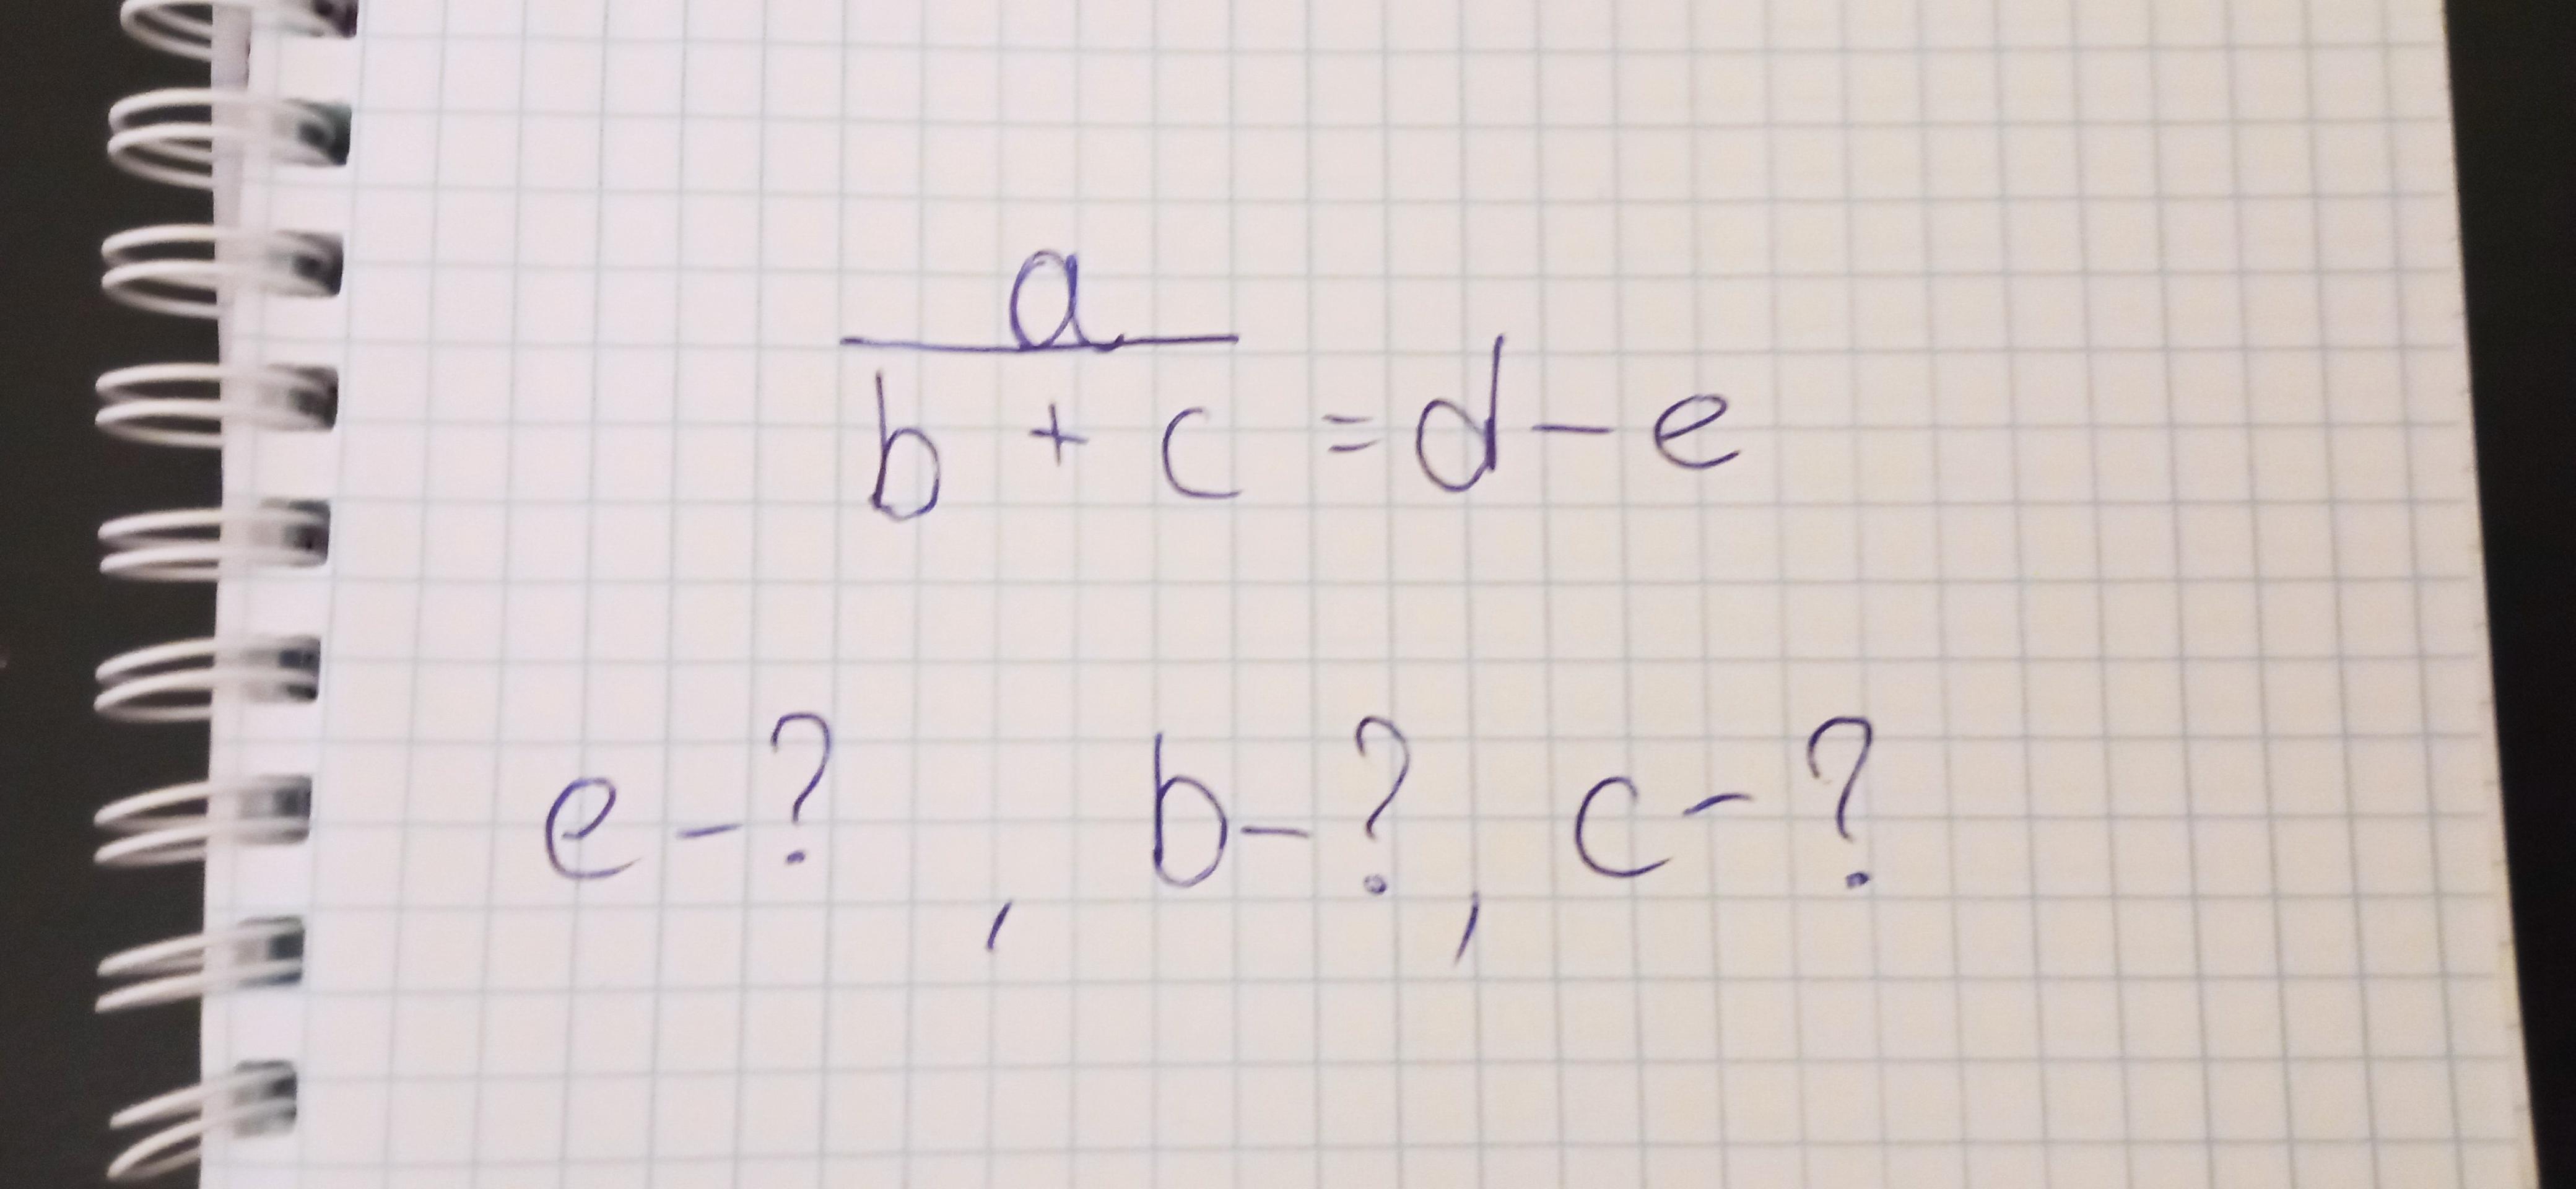 a
b + c = d - e
e - ? , b - ? , c - ?